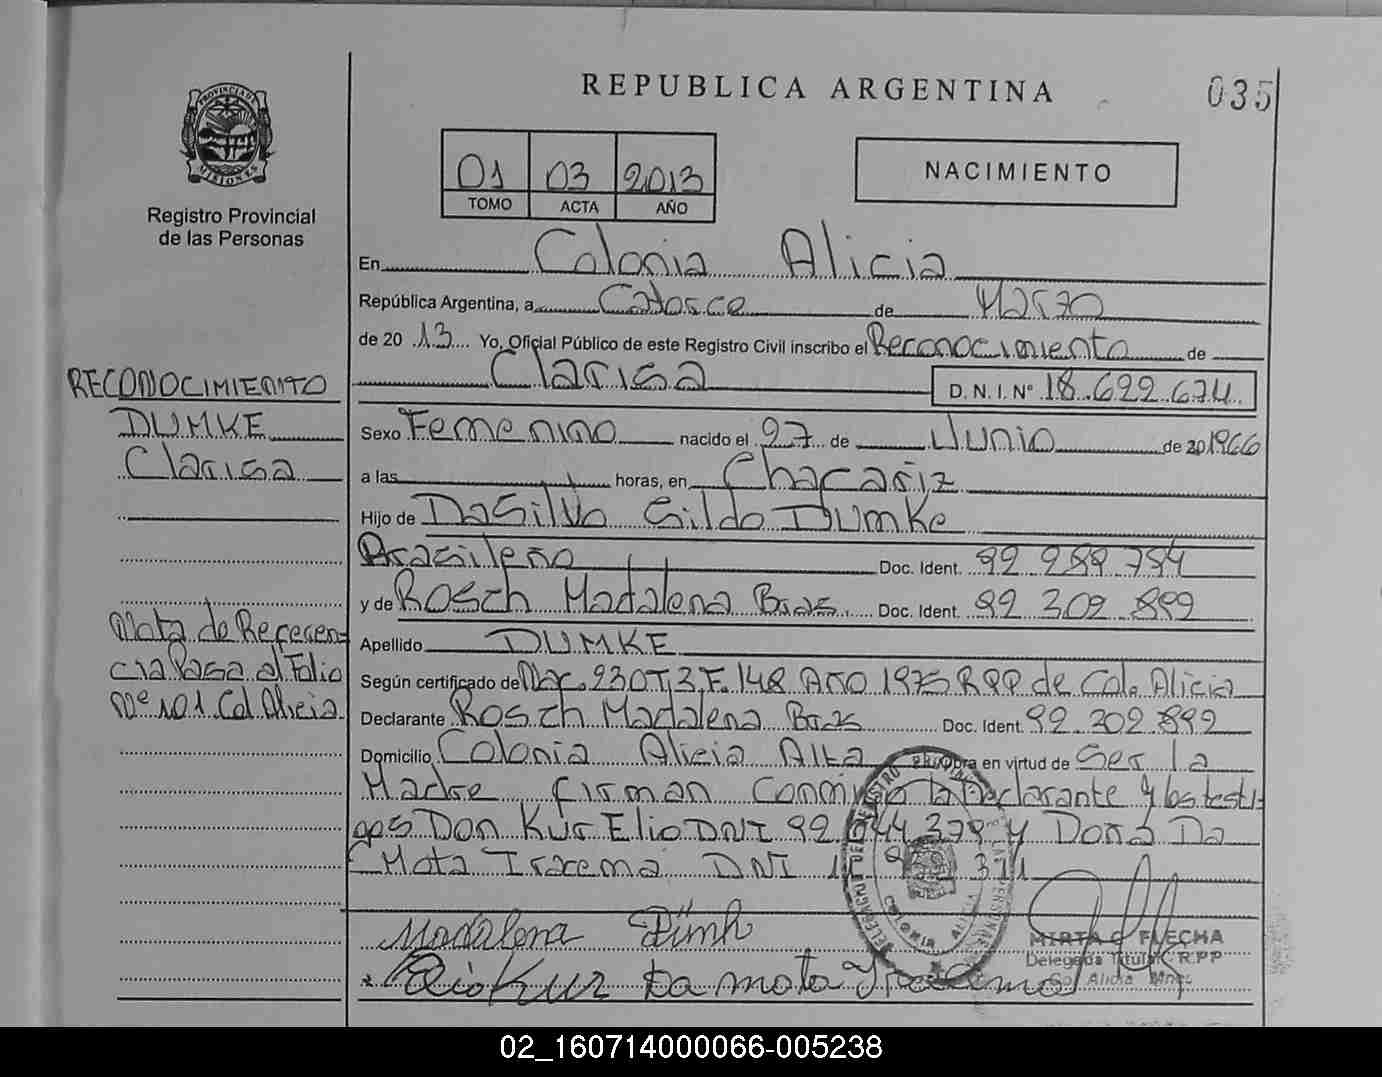 REPUBLICA ARGENTINA
035
PROVINCIA DE
MISIONES
Registro Provincial
de las Personas
01 03 2013
TOMO ACTA AÑO
NACIMIENTO
En Colonia Alicia
República Argentina, a Catorce de Marzo
de 20 13 Yo, Oficial Público de este Registro Civil inscribo el Reconocimiento de
Clarisa D.N.I. Nº 18.622.674
Sexo Femenino nacido el 27 de Junio de 20 1966
a las horas, en Chafariz
Hijo de DaSilva Gildo Dumke
Brasileño Doc. Ident. 92 289 784
y de Rosch Madalena Bras. Doc. Ident. 92 302 892
Apellido DUMKE
Según certificado de Nac. 230 T, 3 F. 148 Año 1975 RPP de Col. Alicia
Declarante Rosch Madalena Bras Doc. Ident. 92 302 892
Domicilio Colonia Alicia Alta Obra en virtud de Ser la
Madre firman Conmigo la Declarante y los testi-
gos Don Kur Elio DNI 92 044 379 y Doña Da
Mota Iracema DNI 311
Madalena
Elio Kur Da mota Iracema
MIRTA G FLECHA
Delegada Titular R.PP
Col Alicia Mnes
COLONIA ALICIA
RECONOCIMIENTO
DUMKE
Clarisa
Nota de Referen-
cia Pasa al Folio
Nº 101 Col Alicia
02_160714000066-005238